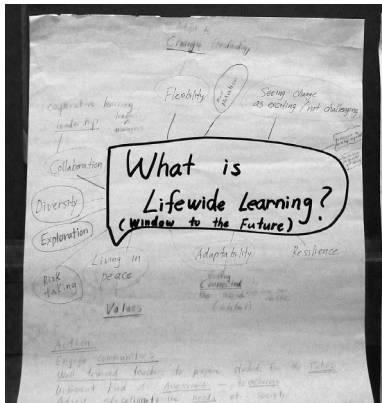 Change
Flexibility
Seeing change
as exciting / not challenging
cooperative learning
leadership
Collaboration
Diversity
Exploration
Risk
taking
What is
Lifewide Learning?
(Window to the Future)
Living in
peace
Adaptability
Resilience
Values
Action
Engage communities
Well trained teachers to prepare students for the future
Different kind of Assessment
the needs of society